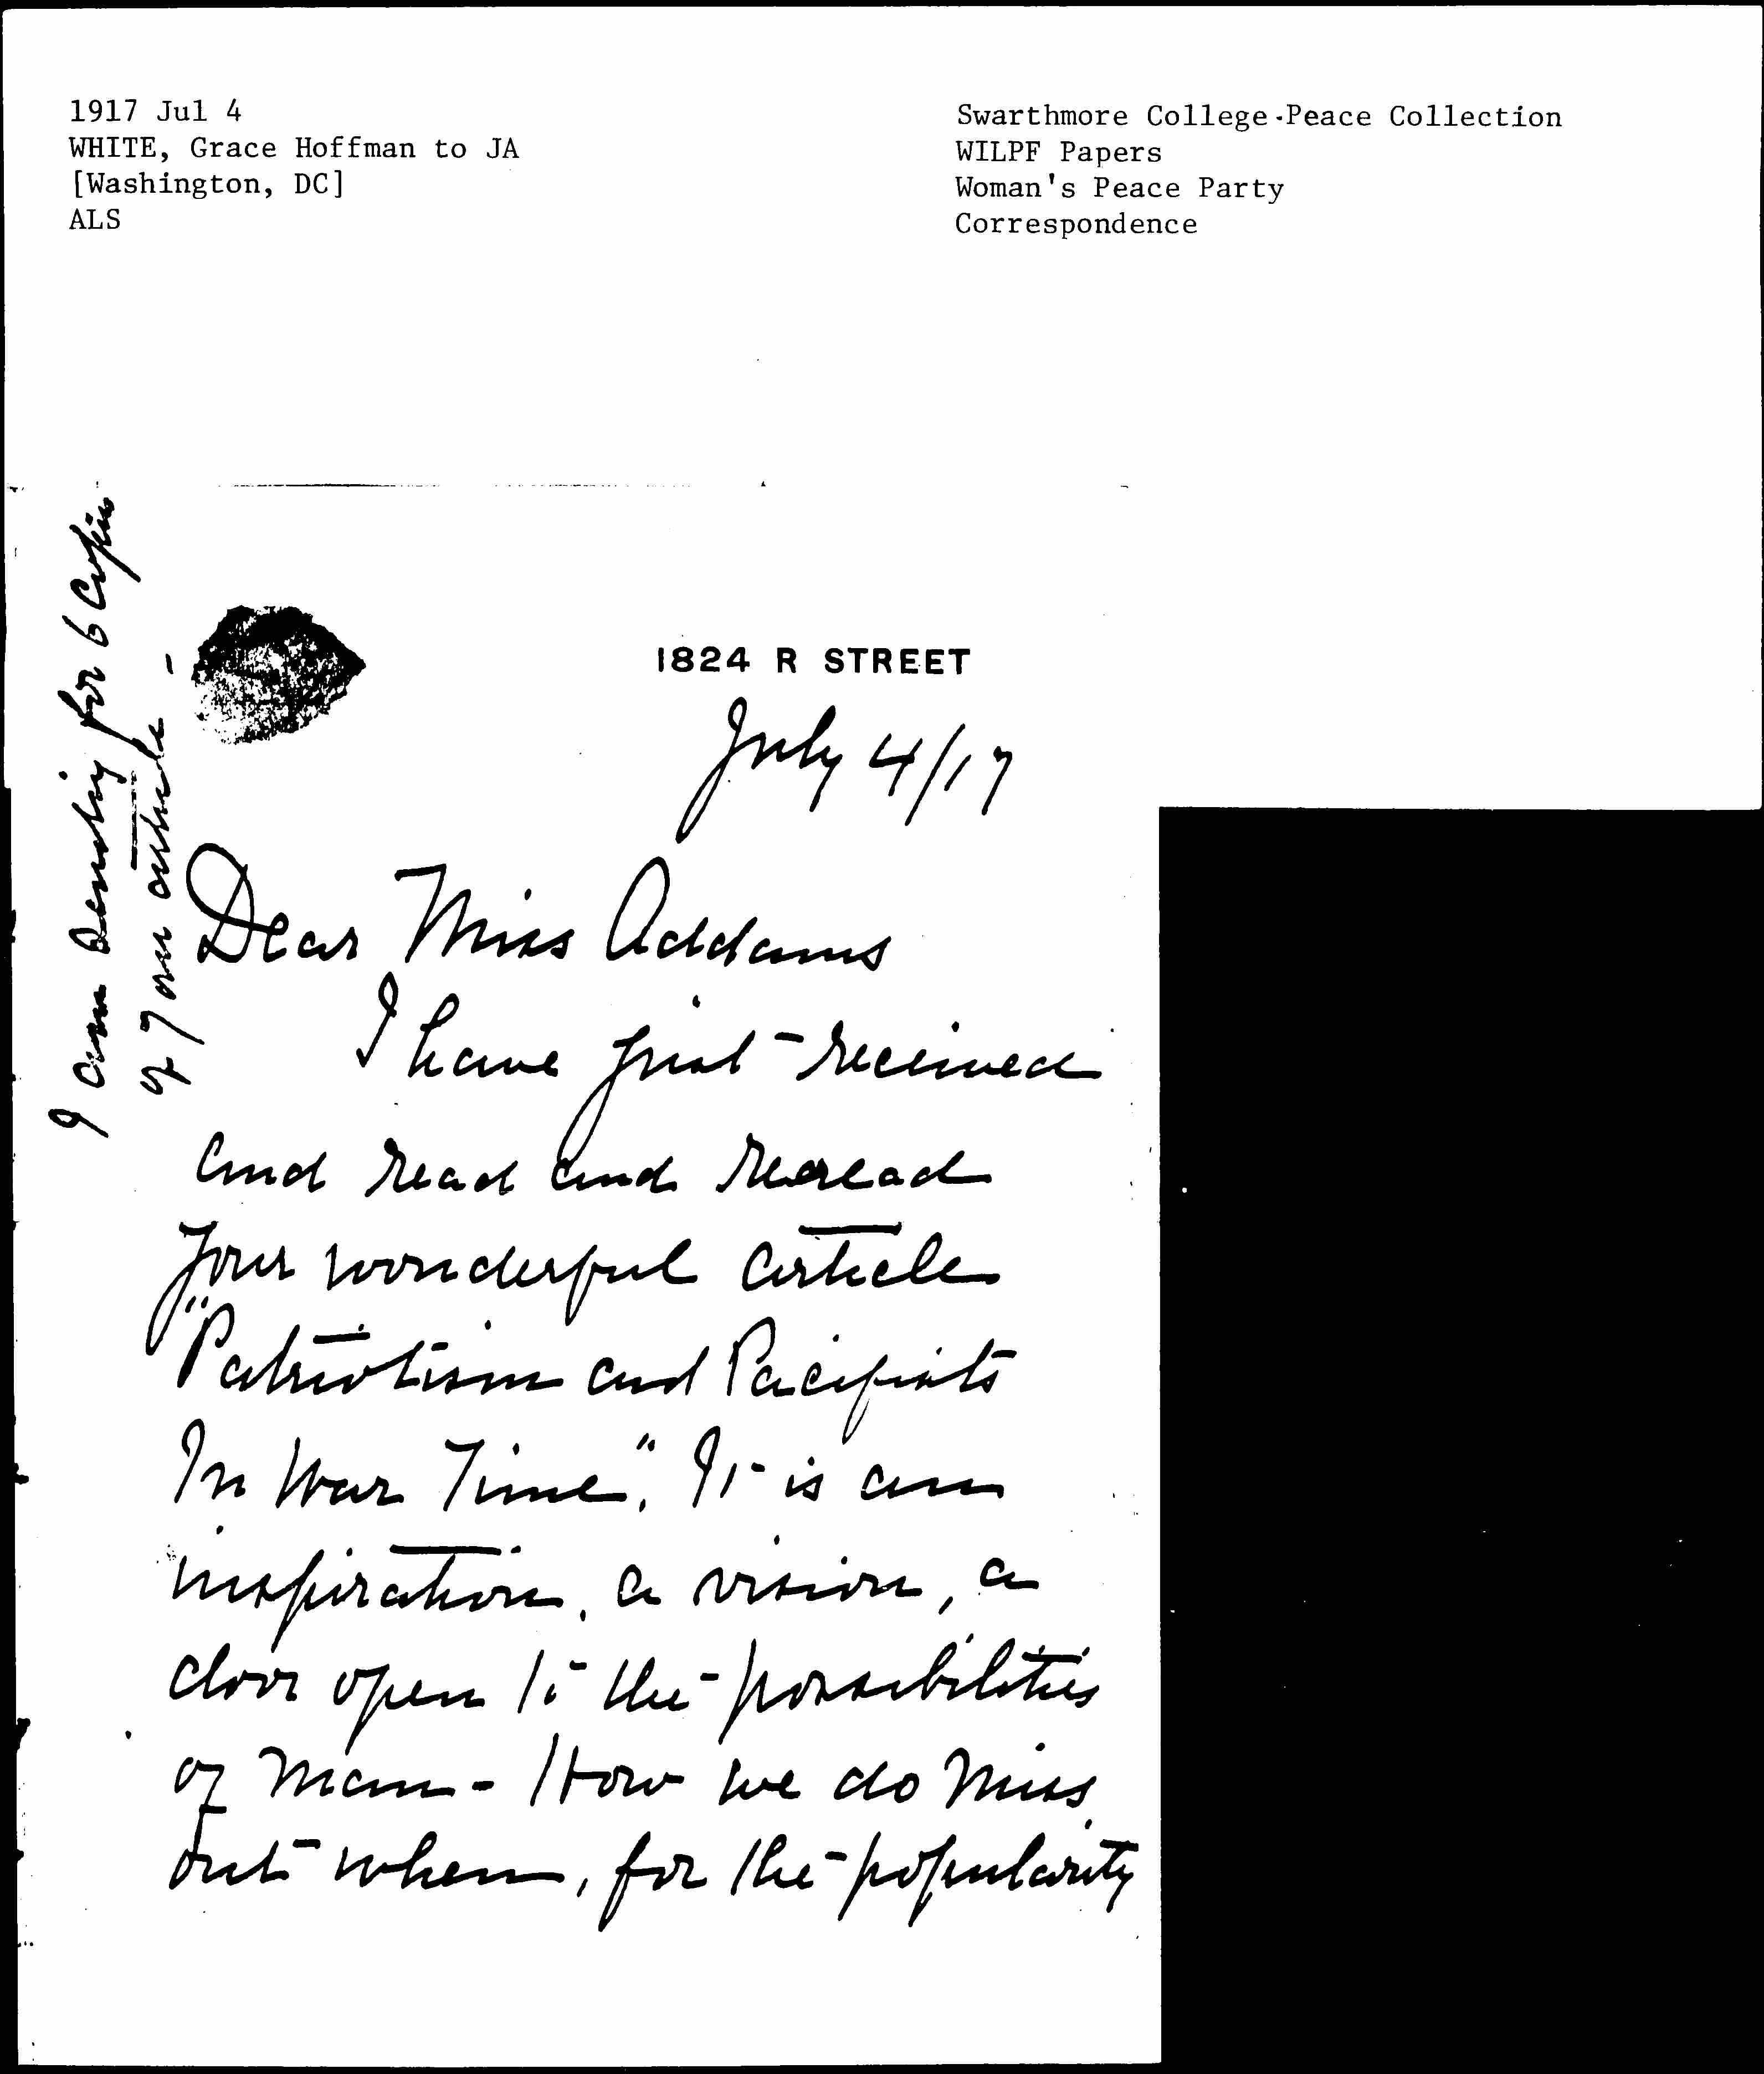 1917 Jul 4
WHITE, Grace Hoffman to JA
[Washington, DC]
ALS
Swarthmore College-Peace Collection
WILPF Papers
Woman's Peace Party
Correspondence
1824 R STREET
July 4/17
Dear Miss Addams
I have just received
and read and reread
your wonderful article
"Patriotism and Pacifists
In War Time". It is an
inspiration, a vision, a
door open to the possibilities
of Man - How we do miss
out when, for the popularity
I am sending for 6 copies
of article -